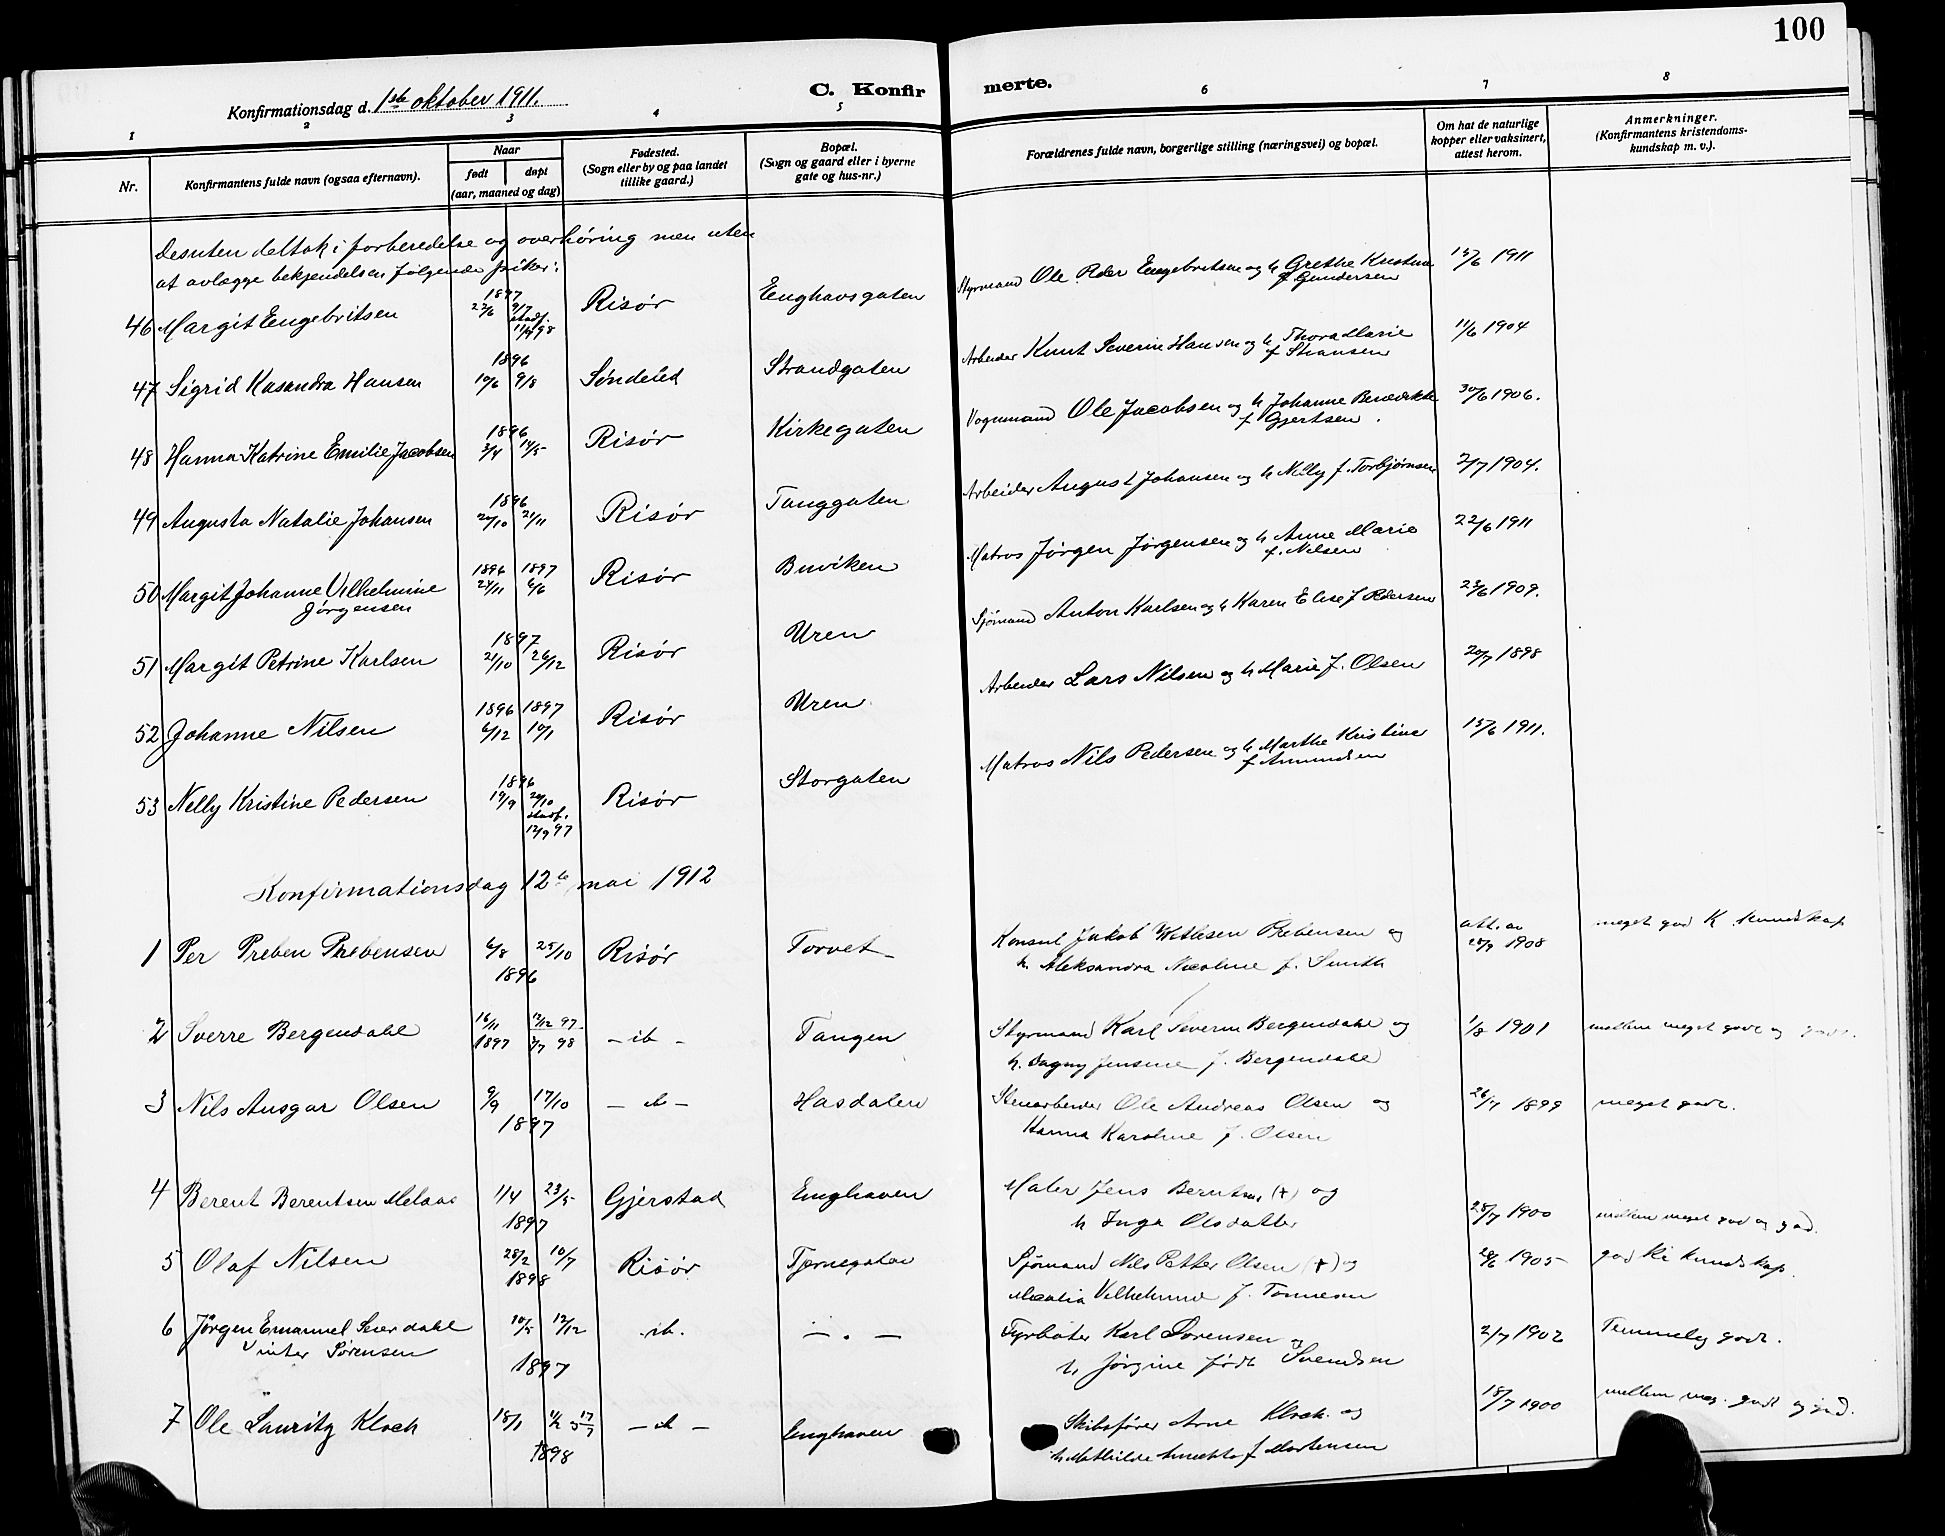 100
Konfirmationsdag d. 1ste oktober 1911.
C. Konfirmerte.
1 2 3 4 5 6 7 8
Nr.
Konfirmantens fulde navn (ogsaa efternavn).
Naar
født døpt
(aar, maaned og dag)
Fødested.
(Sogn eller by og paa landet
tillike gaard.)
Bopæl.
(Sogn og gaard eller i byerne
gate og hus-nr.)
Forældrenes fulde navn, borgerlige stilling (næringsvei) og bopæl.
Om hat de naturlige
kopper eller vaksinert,
attest herom.
Anmerkninger.
(Konfirmantens kristendoms-
kundskap m. v.).
Desuten deltok i forberedelse og overhøring men uten
at avlægge bekjendelsen følgende piker:
46 Margit Engebritsen 1897 22/6 9/7 stadf. 11/9 98 Risør Enghavsgaten Styrmand Ole Peder Engebritsen og h Grethe Kristine 15/6 1911
f Gundersen
47 Sigrid Kasandra Hansen 1896 10/6 9/8 Søndeled Strandgaten Arbeider Knut Severin Hansen og h Thora Marie 11/6 1904
f Shansen
48 Hanna Katrine Emilie Jacobsen 1896 3/4 14/5 Risør Kirkegaten Vognmand Ole Jacobsen og h Johanne Benedikte 30/6 1906.
f Gjertsen.
49 Augusta Natalie Johansen 1896 20/10 21/11 Risør Tanggaten Arbeider August Johansen og h Nilly f. Torbjørnsen 2/7 1904.
50 Margit Johanne Vilhelmine 1896 24/11 1897 6/6 Risør Buviken Matros Jørgen Jørgensen og h Anne Marie 22/6 1911
Jørgensen f. Nilsen
51 Margit Petrine Karlsen 1897 21/10 26/12 Risør Uren Sjømand Anton Karlsen og h Karen Elise f Pedersen 23/6 1909.
52 Johanne Nilsen 1896 6/12 1897 10/1 Risør Uren Arbeider Lars Nilsen og h Marie f. Olsen 20/7 1898
53 Nelly Kristine Pedersen 1896 19/9 20/10 stadf. 12/9 97 Risør Storgaten Matros Nils Pedersen og h Marthe Kristine 15/6 1911.
f Amundsen
Konfirmationsdag 12te mai 1912
1 Per Preben Prebensen 6/8 25/10 Risør Torvet Konsul Jakob Wetlesen Prebensen og att. av 1908 meget god K kundskap
1896 h. Aleksandra Nicoline f. Smith
2 Sverre Bergendahl 16/11 1897 12/12 97 3/7 98 - ib - Tangen Styrmand Karl Severin Bergendahl og 1/8 1901 mellem meget godt og godt.
h. Dagny Jensine f. Bergendahl
3 Nils Ansgar Olsen 9/9 17/10 - ib - Hasdalen Stenarbeider Ole Andreas Olsen og 26/7 1899 meget godt.
1897 Hanna Karoline f. Olsen
4 Berent Berentsen Melaas 1/4 23/5 Gjerstad Enghaven Maler Jens Berntsen (+) og
1897 h Inga Olsdatter 28/7 1900 mellem meget god og god.
5 Olaf Nilsen 28/2 10/7 Risør Tjernegaten Sjømand Nils Petter Olsen (+) og 28/6 1905 god Kr kundskap.
1898 Vilhelmine f. Tønnesen
6 Jørgen Emanuel 10/5 12/12 ib. - . - Fyrbøter Karl Sørensen og 2/7 1902 Temmelig godt.
Sørensen 1897 h. Jørgine født Svendsen
7 Ole Lauritz Kloch 18/1 - ib - Enghaven Skibsfører Arne Kloch og 18/7 1900 mellem meg. godt og god.
1898 h Mathilde f Mortensen